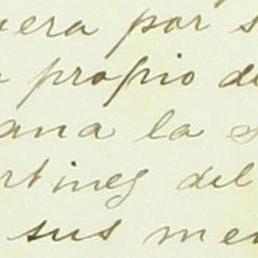 uera por s
propio de
ana la s
rtinez del
sus me